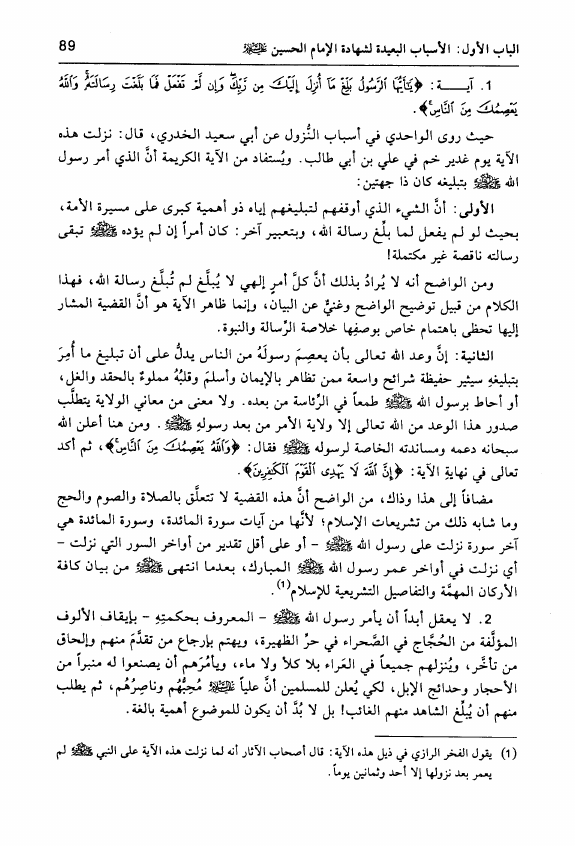 الباب الأول: الأسباب البعيدة لشهادة الإمام الحسين ﷺ 89
1. آيـــة: ﴿يَٰٓأَيُّهَا ٱلرَّسُولُ بَلِّغْ مَآ أُنزِلَ إِلَيْكَ مِن رَّبِّكَ وَإِن لَّمْ تَفْعَلْ فَمَا بَلَّغْتَ رِسَالَتَهُۥ وَٱللَّهُ
يَعْصِمُكَ مِنَ ٱلنَّاسِ﴾.
حيث روى الواحدي في أسباب النُّزول عن أبي سعيد الخدري، قال: نزلت هذه
الآية يوم غدير خم في علي بن أبي طالب. ويُستفاد من الآية الكريمة أنَّ الذي أمر رسول
الله ﷺ بتبليغه كان ذا جهتين:
الأولى: أنَّ الشيء الذي أوقفهم لتبليغهم إياه ذو أهمية كبرى على مسيرة الأمة،
بحيث لو لم يفعل لما بلّغ رسالة الله، وبتعبير آخر: كان أمراً إن لم يؤده ﷺ تبقى
رسالته ناقصة غير مكتملة!
ومن الواضح أنه لا يُرادُ بذلك أنَّ كلَّ أمرٍ إلهي لا يُبلَّغ لم تُبلَّغ رسالة الله، فهذا
الكلام من قبيل توضيح الواضح وغنيٌّ عن البيان، وإنما ظاهر الآية هو أنَّ القضية المشار
إليها تحظى باهتمام خاص بوصفِها خلاصة الرِّسالة والنبوة.
الثانية: إنَّ وعد الله تعالى بأن يعصِمَ رسولَهُ من الناس يدلُّ على أن تبليغ ما أُمِرَ
بتبليغهِ سيثير حفيظة شرائح واسعة ممن تظاهر بالإيمان وأسلمَ وقلبُهُ مملوءٌ بالحقد والغل،
أو أحاط برسول الله ﷺ طمعاً في الرِّئاسة من بعده. ولا معنى من معاني الولاية يتطلَّب
صدور هذا الوعد من الله تعالى إلا ولاية الأمر من بعد رسولهِ ﷺ. ومن هنا أعلن الله
سبحانه دعمه ومساندته الخاصة لرسوله ﷺ فقال: ﴿وَٱللَّهُ يَعْصِمُكَ مِنَ ٱلنَّاسِ﴾، ثم أكد
تعالى في نهايةِ الآية: ﴿إِنَّ ٱللَّهَ لَا يَهْدِى ٱلْقَوْمَ ٱلْكَٰفِرِينَ﴾.
مضافاً إلى هذا وذاك، من الواضح أنَّ هذه القضية لا تتعلَّق بالصلاة والصوم والحج
وما شابه ذلك من تشريعات الإسلام؛ لأنَّها من آيات سورة المائدة، وسورة المائدة هي
آخر سورة نزلت على رسول الله ﷺ - أو على أقل تقدير من أواخر السور التي نزلت -
أي نزلت في أواخر عمر رسول الله ﷺ المبارك، بعدما انتهى ﷺ من بيان كافة
الأركان المهمَّة والتفاصيل التشريعية للإسلام(1).
2. لا يعقل أبداً أن يأمر رسول الله ﷺ - المعروف بحكمتِهِ - بإيقاف الألوف
المؤلَّفة من الحُجَّاج في الصَّحراء في حرِّ الظهيرة، ويهتم بإرجاع من تقدَّم منهم وإلحاق
من تأخَّر، ويُنزلهم جميعاً في العَراء بلا كلأ ولا ماء، ويأمُرَهم أن يصنعوا له منبراً من
الأحجار وحدائج الإبل، لكي يُعلن للمسلمين أنَّ علياً مُحِبُّهُم وناصِرُهُم، ثم يطلب
منهم أن يُبلِّغ الشاهد منهم الغائب! بل لا بُدَّ أن يكون للموضوع أهمية بالغة.
(1) يقول الفخر الرازي في ذيل هذه الآية: قال أصحاب الآثار أنه لما نزلت هذه الآية على النبي ﷺ لم
يعمر بعد نزولها إلا أحد وثمانين يوماً.